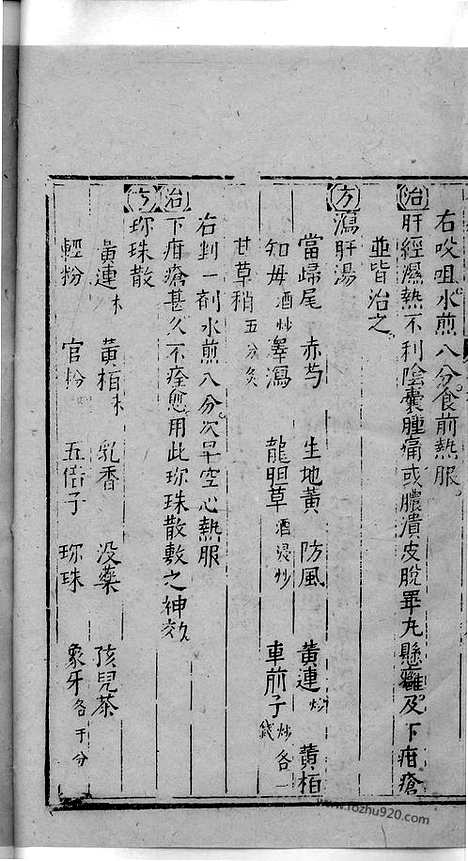 右㕮咀水煎八分食前熱服
治肝經濕熱不利陰囊腫痛或膿潰皮脫睪丸懸癰及下疳瘡
並皆治之
方瀉肝湯
當歸尾 赤芍 生地黃 防風 黃連炒 黃栢
知母酒炒 澤瀉 龍胆草酒浸炒 車前子炒各一錢
甘草稍五分炙
右剉一劑水煎八分次早空心熱服
治下疳瘡甚久不痊愈用此珎珠散敷之神效
方珎珠散
黃連末 黃栢末 乳香 没藥 孩兒茶
輕粉 官粉 五倍子 珎珠 象牙各 分
www.fozhu920.com